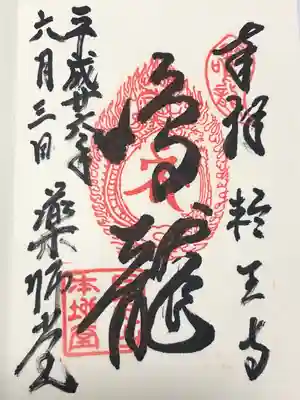 奉拝 輪王寺
鳴龍
平成廿六年
六月三日
薬師堂